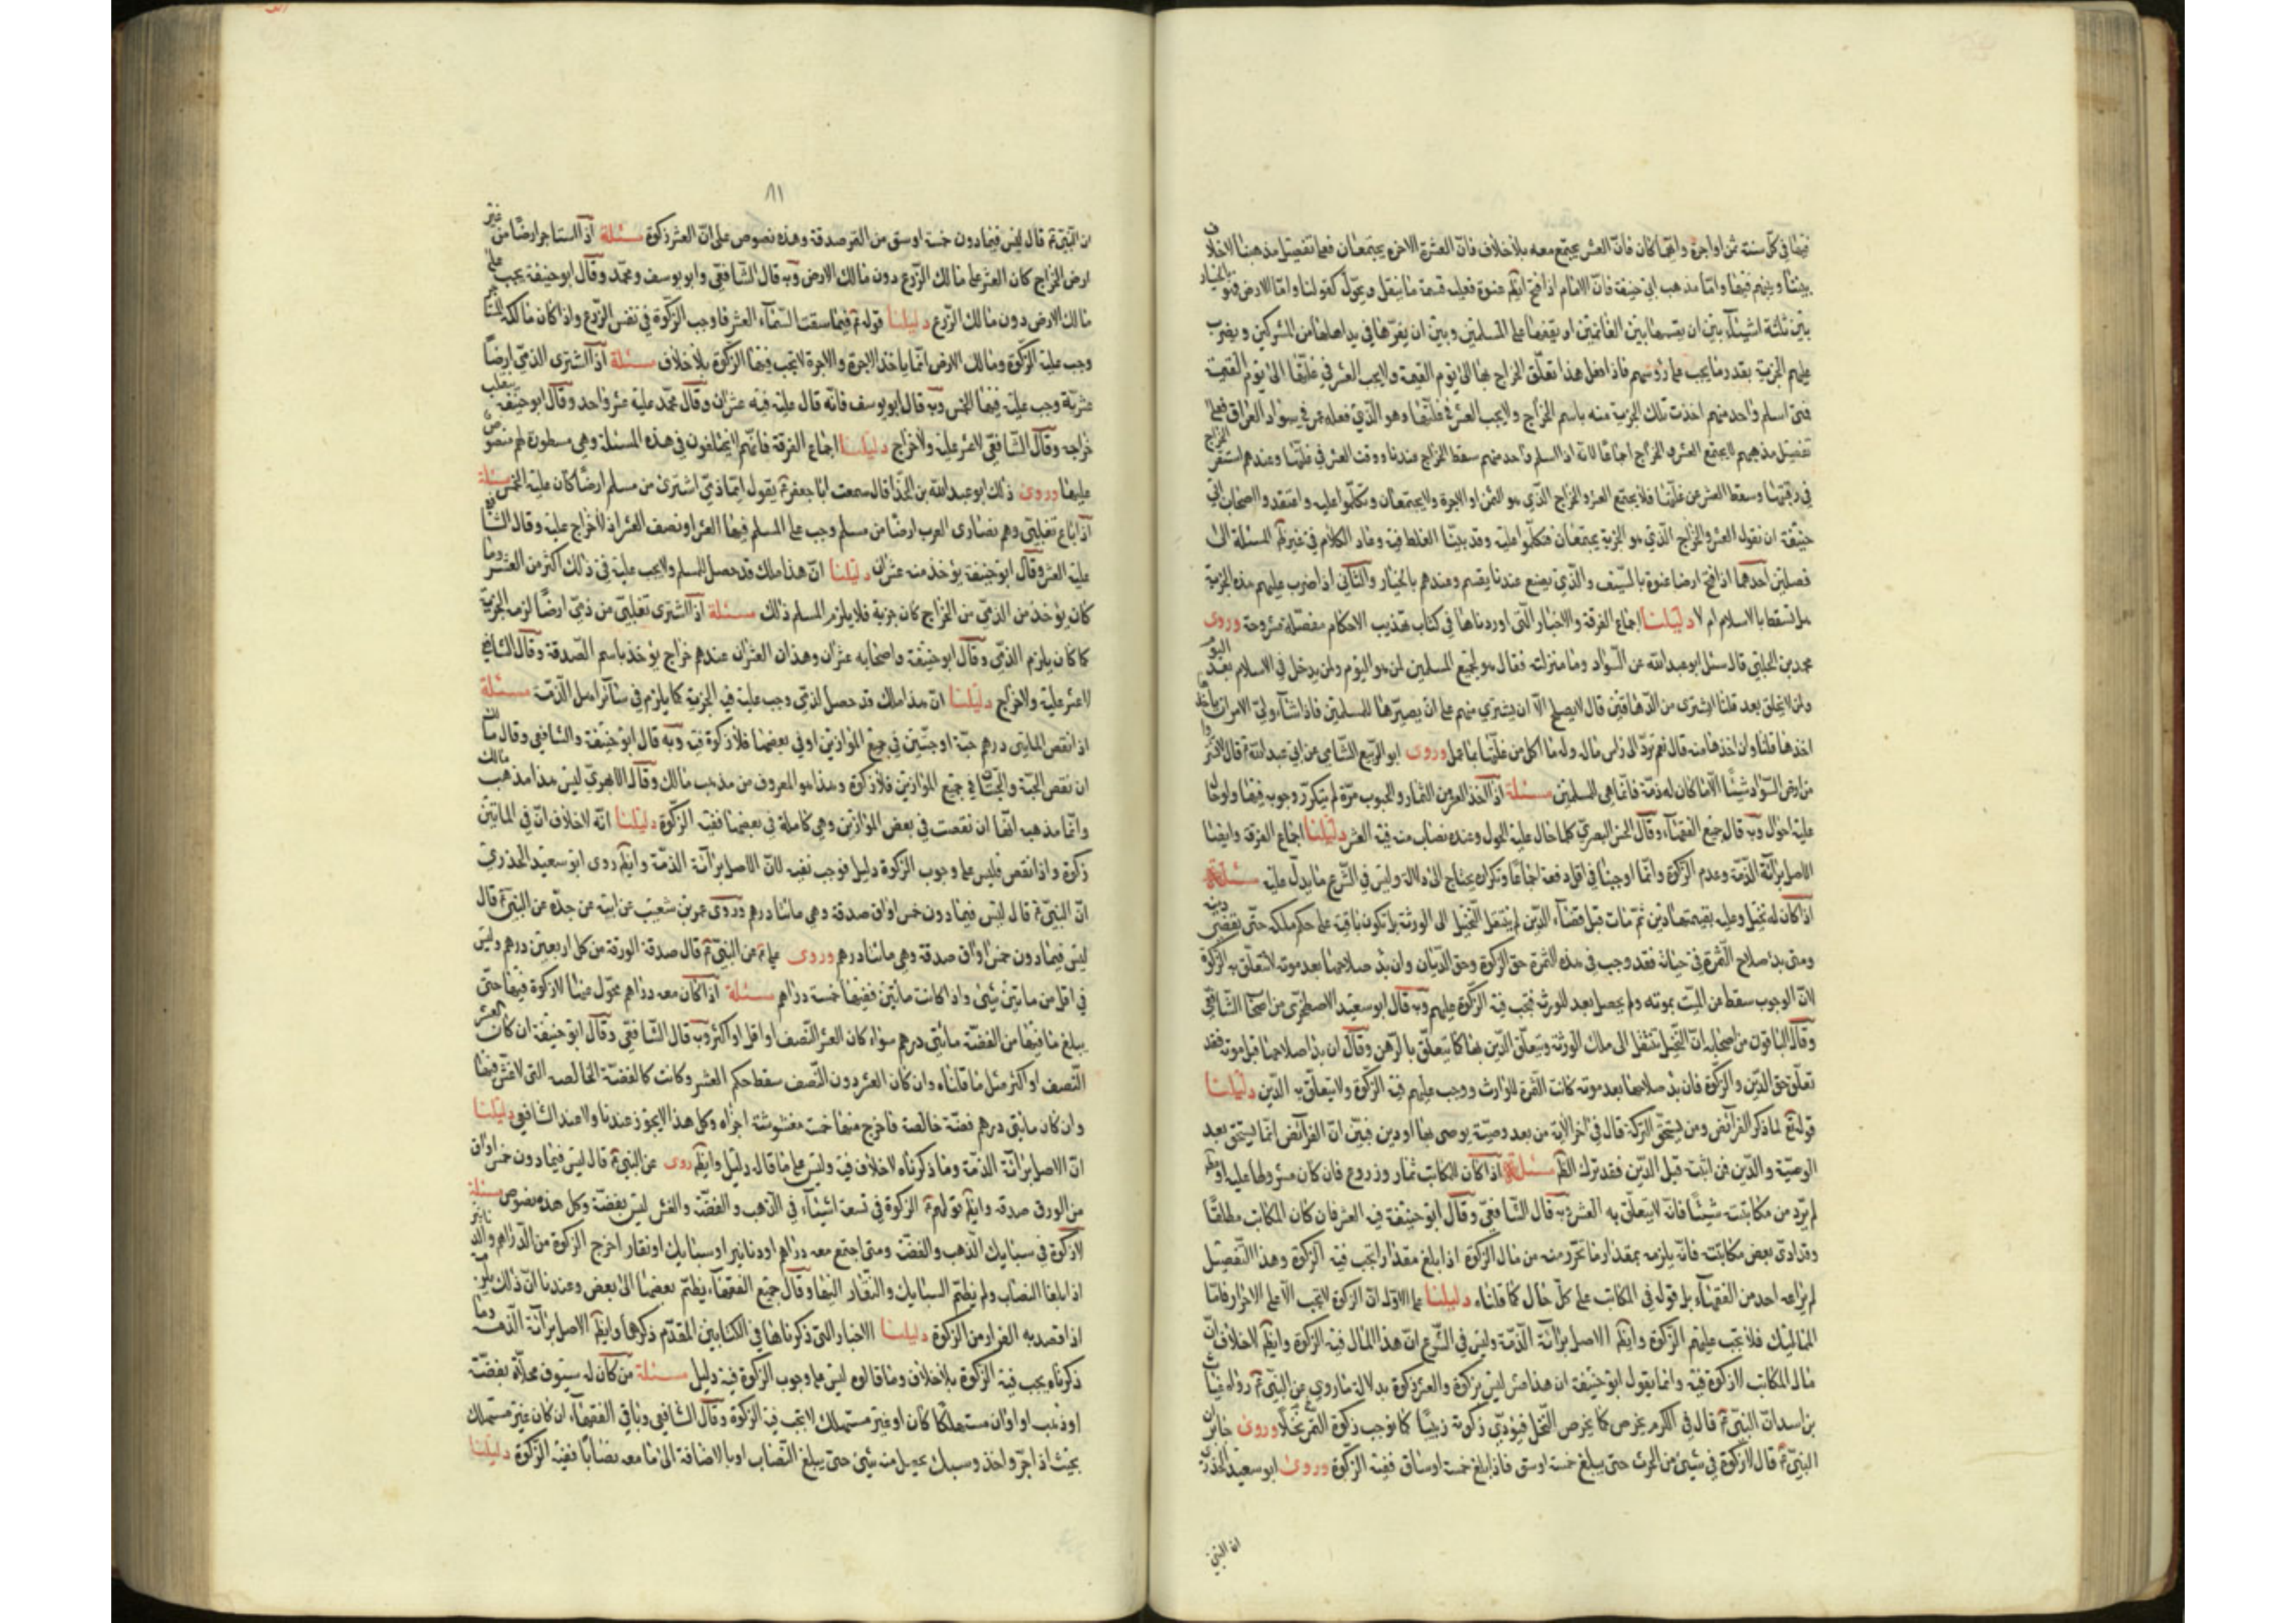 فيها في كل سنة ثمن او اجرة وايهما كان فان العشر يجتمع معه بلا خلاف فان العشر الاخر يجتمعان فهما تفصيل مذهبنا الاخلاف
بيننا وبينهم فيها واما مذهب ابي حنيفة فان الامام اذا فتح ارضا عنوة فعليه قسمة ما ينقل ويحول كقولنا واما الارض فهو بالخيار
بين ثلثة اشيآء بين ان يقسمها بين الغانمين او يقفها على المسلمين وبين ان يقرها في يد اهلها من المشركين ويضرب
عليهم الجزية بقدر ما يجب على رؤسهم فاذا فعل هذا تعلق الخراج بها الى يوم القيمة ولا يجب العشر في غلتها الى يوم القيمة
فمتى اسلم واحد منهم اخذت تلك الجزية منه باسم الخراج ولا يجب العشر في غلتها وهو الذي فعله عمر في سواد العراق فعلى
تفصيل مذهبهم لا يجتمع العشر والخراج اجماعا لانه اذا اسلم واحد منهم سقط الخراج عندنا ووقت العشر في غلتها وعندهم استقر الخراج
في رقبتها وسقط العشر من غلتها فلا يجتمع العشر والخراج الذي هو الثمن او الاجرة ولا يجتمعان وتكلموا عليه واعتقد واصحاب ابي
حنيفة ان نقول العشر والخراج الذي هو الجزية يجتمعان فتكلموا عليه وقد بينا الغلط فيه وعاد الكلام في غير المسئلة الى
فصلين احدهما اذا فتح ارضا عنوة بالسيف والذي يصنع عندنا يقسم وعندهم بالخيار والثاني اذا ضرب عليهم هذه الجزية
هل تسقط بالاسلام ام لا دليلنا اجماع الفرقة والاخبار التي اوردناها في كتاب تهذيب الاحكام مفصلة مشروحة وروى
محمد بن الحلبي قال سئل ابو عبد الله عن السواد وما منزلته فقال هو لجميع المسلمين لمن هو اليوم ولمن يدخل في الاسلام بعد اليوم
ولمن لا يخلق بعد قلنا الشرى من الدهاقين قال لا يصلح الا ان يشتري منهم على ان يصيرها للمسلمين فاذا شآء ولي الامر ان ياخذها
اخذها قلنا وان اخذها منه قال نعم يرد الى راس ماله وله ما اكل من غلتها بما عمل وروى ابو الربيع الشامي عن ابي عبد الله قال لا تشتر
من ارض السواد شيئا الا ما كان له ذمة فانما هي للمسلمين مسئلة اذا اخذ العشر من الثمار والحبوب مرة لم يتكرر وجوبه فيها ولو حال
عليه احوال وبه قال جميع الفقهآء وقال الحسن البصري كلما حال عليه الحول وعنده نصاب منه فيه العشر دليلنا اجماع الفرقة وايضا
الاصل برآئة الذمة وعدم الزكوة وانما اوجبنا في اول دفعة اجماعا وتكراره يحتاج الى دلالة وليس في الشرع ما يدل عليه مسئلة
اذا كان له نخيل وعليه بقيمتها دين ثم مات قبل قضآء الدين لم ينتقل النخيل الى الورثة بل تكون باقية على حكم ملكه حتى يقضى دينه
ومتى بدا صلاح الثمرة في حياته فقد وجب في هذه الثمرة حق الزكوة وحق الديان وان بدا صلاحها بعد موته لا تتعلق به الزكوة
لان الوجوب سقط عن الميت بموته ولم يحصل بعد للورثة فتجب فيه الزكوة عليهم وبه قال ابو سعيد الاصطخري من اصحاب الشافعي
وقال الباقون من اصحابه ان النخيل تنتقل الى ملك الورثة ويتعلق الدين بها كما يتعلق بالرهن وقال ان بدا صلاحها قبل موته فقد
تعلق حق الدين والزكوة فان بدا صلاحها بعد موته كانت الثمرة للوارث ووجب عليهم فيه الزكوة ولا يتعلق به الدين دليلنا
قوله تع لما ذكر الفرآئض ومن يستحق التركة قال في اخر الاية من بعد وصية يوصى بها او دين فبين ان الفرآئض انما يستحق بعد
الوصية والدين فمن اثبته قبل الدين فقد ترك الظم مسئلة اذا كان للمكاتب ثمار وزروع فان كان مشروطا عليه او
لم يرد من مكاتبته شيئا فانه لا يتعلق به العشر وبه قال الشافعي وقال ابو حنيفة فيه العشر فان كان المكاتب مطلقا
وقد ادى بعض مكاتبته فانه يلزمه بمقدار ما تحرر منه من مال الزكوة اذا بلغ مقدارا تجب فيه الزكوة وهذا التفصيل
لم يراعه احد من الفقهآء بل قوله في المكاتب على كل حال كما قلناه دليلنا على الاول ان الزكوة لا تجب الا على الاحرار فاما
المماليك فلا تجب عليهم الزكوة وايضم الاصل برآئة الذمة وليس في الشرع ان هذا المال فيه الزكوة وايضم لا خلاف ان
مال المكاتب لا زكوة فيه وانما يقول ابو حنيفة ان هذا عشر ليس بزكوة والعشر زكوة بدلالة ما روي عن النبي رواه عتاب
بن اسيد ان النبي قال في الكرم يخرص كما يخرص النخل فيؤدي زكوته زبيبا كما يؤدى زكوة النخل تمرا وروى جابر ان
النبي قال لا زكوة في شئ من الحرث حتى يبلغ خمسة اوسق فاذا بلغ خمسة اوساق ففيه الزكوة وروى ابو سعيد الخدري
ان النبي
٨١
ان النبي قال ليس فيما دون خمسة اوسق من التمر صدقة وهذه نصوص على ان العشر زكوة مسئلة اذا استاجر ارضا من غير
ارض الخراج كان العشر على مالك الزرع دون مالك الارض وبه قال الشافعي وابو يوسف ومحمد وقال ابو حنيفة يجب على
مالك الارض دون مالك الزرع دليلنا قوله فيما سقت السمآء العشر فاوجب الزكوة في نفس الزرع واذا كان مالكه المستاجر
وجب عليه الزكوة ومالك الارض انما ياخذ الاجرة والاجرة لا تجب فيها الزكوة بلا خلاف مسئلة اذا اشترى الذمي ارضا
عشرية وجب عليه فيها الخمس وبه قال ابو يوسف فانه قال عليه فيه عشران وقال محمد عليه عشر واحد وقال ابو حنيفة ينقلب
خراجية وقال الشافعي لا عشر عليه ولا خراج دليلنا اجماع الفرقة فانهم لا يختلفون في هذه المسئلة وهي مسطورة لهم منصوص
عليها وروى ذلك ابو عبيدة الحذا قال سمعت ابا جعفر يقول ايما ذمي اشترى من مسلم ارضا كان عليه الخمس مسئلة
اذا باع تغلبي وهم نصارى العرب ارضا من مسلم وجب على المسلم فيها العشر او نصف العشر اذ لا خراج عليه وقال الشافعي
عليه العشر وقال ابو حنيفة يؤخذ منه عشران دليلنا ان هذا ملك قد حصل للمسلم ولا يجب عليه في ذلك اكثر من العشر وما
كان يؤخذ من الذمي من الخراج كان جزية فلا يلزم المسلم ذلك مسئلة اذا اشترى تغلبي من ذمي ارضا لزمه الجزية
كما كان يلزم الذمي وقال ابو حنيفة واصحابه عشران وهذان العشران عندهم خراج يؤخذ باسم الصدقة وقال الشافعي
لا عشر عليه ولا خراج دليلنا ان هذا ملك قد حصل لذمي وجب عليه فيه الجزية كما يلزم في سآئر اهل الذمة مسئلة
اذا نقص المايتي درهم حبة او حبتين في جميع الموازين او في بعضها فلا زكوة فيه وبه قال ابو حنيفة والشافعي وقال مالك
ان نقص الحبة والحبتان في جميع الموازين فلا زكوة وهذا هو المعروف من مذهب مالك وقال الابهري ليس هذا مذهب مالك
وانما مذهبه انها ان نقصت في بعض الموازين وهي كاملة في بعضها ففيه الزكوة دليلنا انه لا خلاف ان في الماتين
زكوة واذا نقص فليس على وجوب الزكوة دليل فوجب نفيه لان الاصل برآئة الذمة وايضم روى ابو سعيد الخدري
ان النبي قال ليس فيما دون خمس اواق صدقة وهي ماتا درهم وروى عمر بن شعيب عن ابيه عن جده عن النبي قال
ليس فيما دون خمس اواق صدقة وهي مائتا درهم وروى علي عن النبي قال صدقة الورقة من كل اربعين درهم وليس
في اقل من ماتين شئ واذا كانت ماتين ففيها خمسة دراهم مسئلة اذا كان معه دراهم محول عنها لا زكوة فيها حتى
يبلغ ما فيها من الفضة مائتي درهم سواء كان الغش النصف او اقل او اكثر وبه قال الشافعي وقال ابو حنيفة ان كان الغش
النصف او اكثر مثل ما قلناه وان كان الغش دون النصف سقط حكم الغش وكانت كالفضة الخالصة التي لا غش فيها
وان كان مايتي درهم فضة خالصة فاخرج منها خمسة مغشوشة اجزاه وكل هذا لا يجوز عندنا ولا عند الشافعي دليلنا
ان الاصل برآئة الذمة وما ذكرناه لا خلاف فيه وليس على ما قال دليل وايضم روى عن النبي قال ليس فيما دون خمس اواق
من الورق صدقة وايضم قولهم الزكوة في تسعة اشيآء في الذهب والفضة والغش ليس بفضة وكل هذه نصوص مسئلة
لا زكوة في سبايك الذهب والفضة ومتى اجتمع معه دراهم او دنانير او سبايك او نقار اخرج الزكوة من الدراهم والدنانير
اذا بلغا النصاب ولم يضم السبايك والنقار اليها وقال جميع الفقهآء يضم بعضها الى بعض وعندنا ان ذلك يلزمه
اذا قصد به الفرار من الزكوة دليلنا الاخبار التي ذكرناها في الكتابين المقدم ذكرهما وايضم الاصل برآئة الذمة وما
ذكرناه يجب فيه الزكوة بلا خلاف وما قالوه ليس على وجوب الزكوة فيه دليل مسئلة من كان له سيوف محلاة بفضة
او ذهب او اوان مستهلكا كان او غير مستهلك لا تجب فيه الزكوة وقال الشافعي وباقي الفقهآء ان كان غير مستهلك
بحيث اذا جر واخذ وسبك يحصل منه شئ حتى يبلغ النصاب او بالاضافة الى ما معه نصابا ففيه الزكوة دليلنا